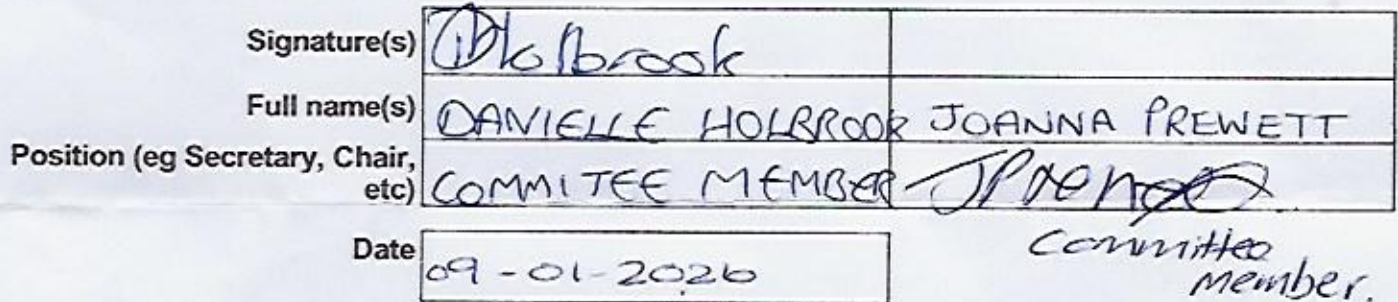 Signature(s) DHolbrook
Full name(s) DANIELLE HOLBROOK JOANNA PREWETT
Position (eg Secretary, Chair,
etc) COMMITEE MEMBER
Date 09-01-2026
Committee
member.